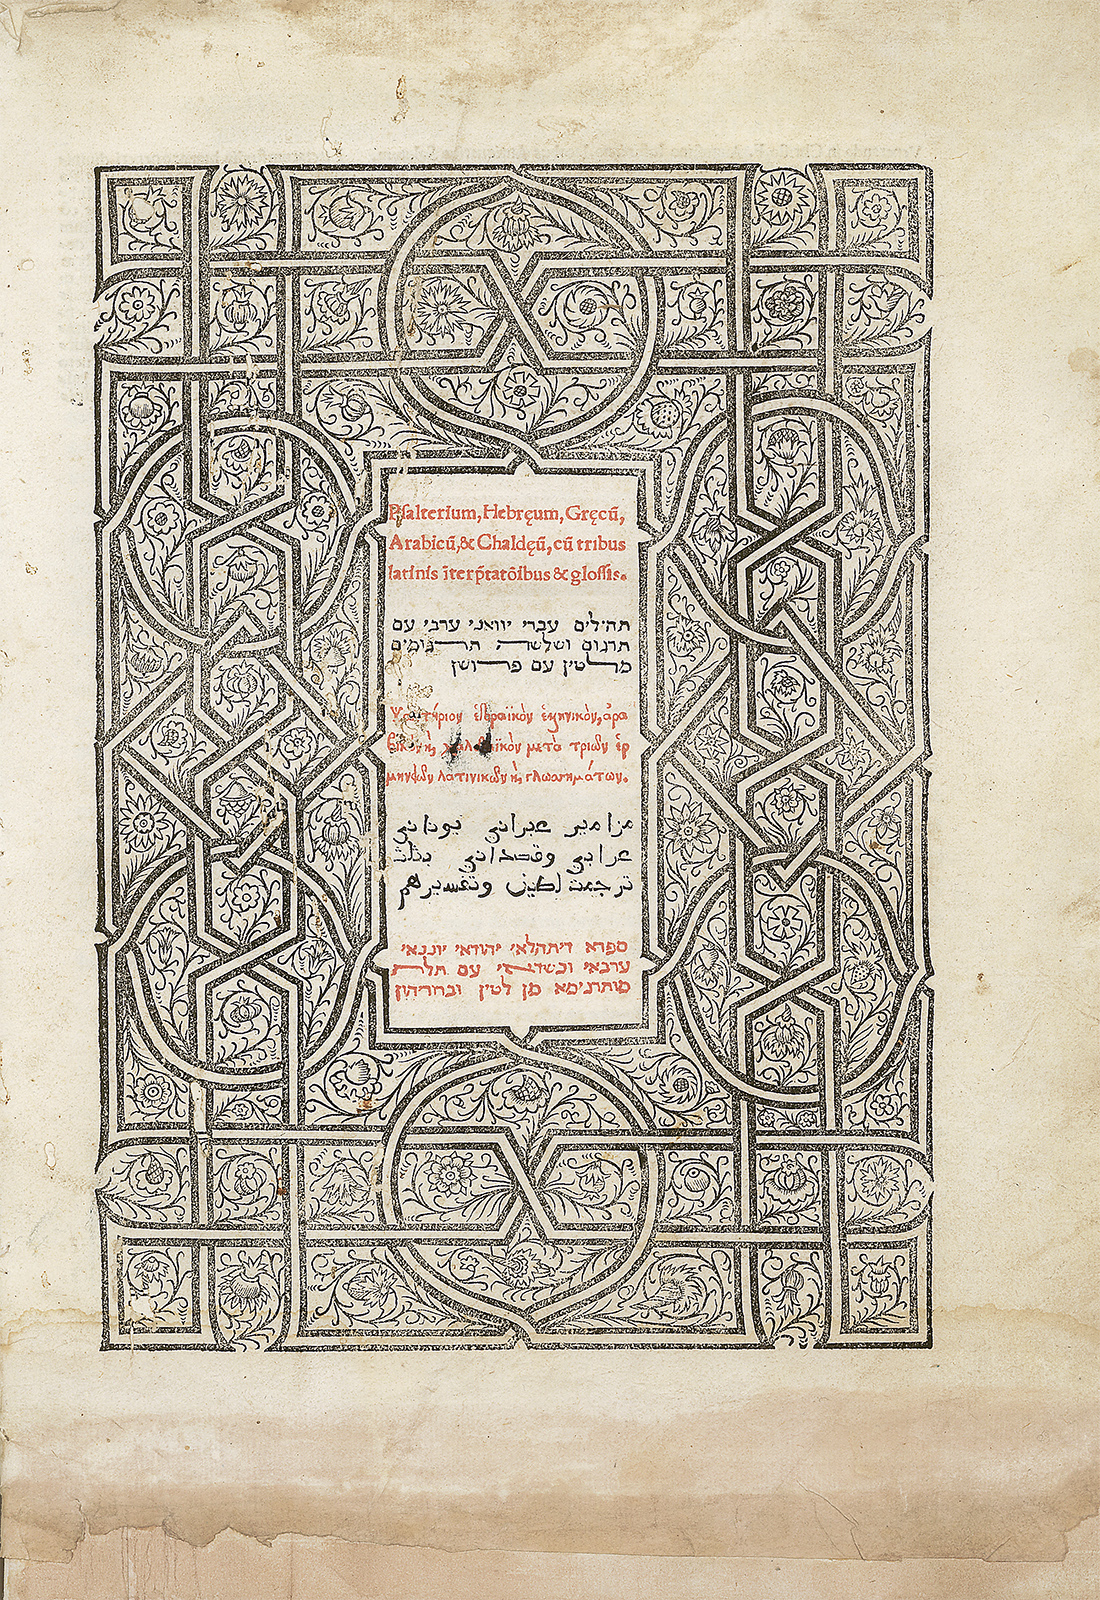 Psalterium, Hebręum, Gręcū,
Arabicū, & Chaldęū, cū tribus
latinis īterp̄tatōibus & glossis.
תהילים עברי יוואני ערבי עם
תרגום ושלשה תרגומים
מלטין עם פרושן
Ψαλτήριον ἑβραϊκὸν ἑλληνικὸν, ἀρα
βικὸν καὶ χαλδαϊκὸν μετὰ τριῶν ἑρ
μηνειῶν λατινικῶν καὶ γλωσσημάτων.
مزامير عبراني يوناني
عرابي وقصداني بثلث
ترجمت لطين وتفسيرهم
ספרא דיתהלאי יהודאי יונגאי
ערבאי וכשדאי עם תלת
מותרגימא מן לטין וברוריהון